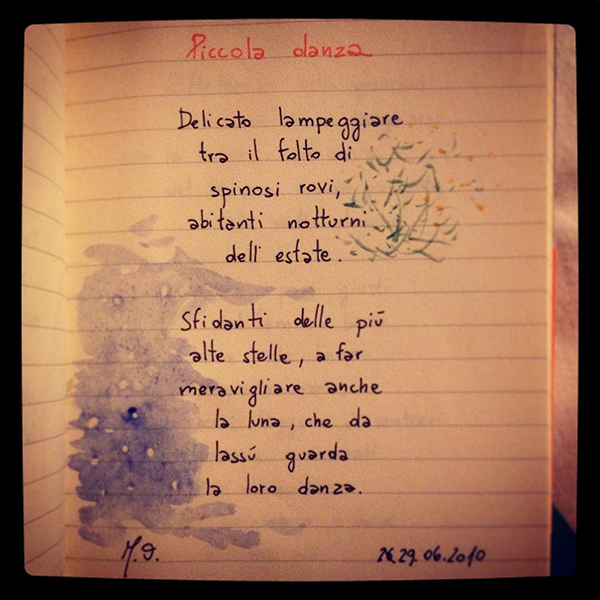 Piccola danza
Delicato lampeggiare
tra il folto di
spinosi rovi,
abitanti notturni
dell'estate.
Sfidanti delle più
alte stelle, a far
meravigliare anche
la luna, che da
lassú guarda
la loro danza.
29.06.2010